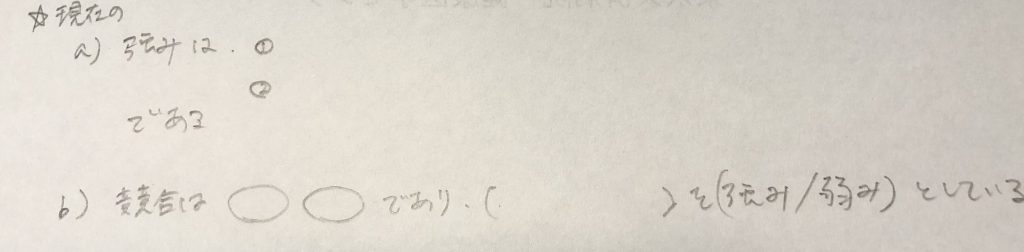 ☆現在の
a) 強みは、①
②
である
b) 競合は ○ ○ であり、( )を(強み/弱み)としている